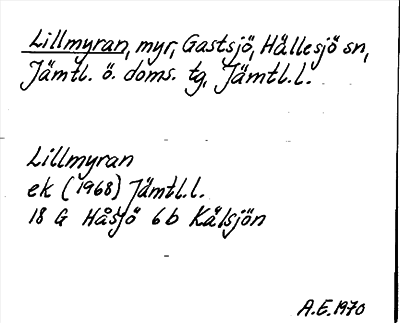 Lillmyran, myr, Gastsjö, Hällesjö sn,
Jämtl. ö. doms. tg, Jämtl.l.
Lillmyran
ek (1968) Jämtl.l.
18 G Håsjö 6b Kälsjön
A.E.1970